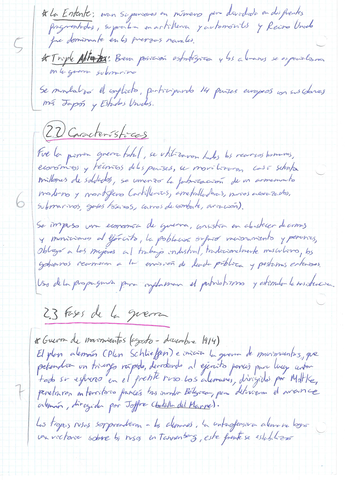 * La Entente: eran superiores en número pero divididos en distintos
fragmentados, superaban en artillería y automóviles y Reino Unido
fue dominante en las fuerzas navales.
5
* Triple Alianza: Buena posición estratégica y los alemanes se especializaron
en la guerra submarina
Se mundializó el conflicto, participando 14 países europeos con sus colonias
más Japón y Estados Unidos.
2.2 Características
Fue la primera guerra total, se utilizaron todos los recursos humanos,
económicos y técnicos del país, se movilizaron casi setenta
millones de soldados, se comenzó la fabricación de un armamento
moderno y mortífero (artillería, ametralladoras, navíos acorazados,
6
submarinos, gases tóxicos, carros de combate, aviación).
Se impuso una economía de guerra, consistía en abastecer de armas
y municiones al ejército, la población sufrió racionamiento y penurias,
obligó a las mujeres al trabajo industrial, tradicionalmente masculino, los
gobiernos recurrieron a la emisión de deuda pública y préstamos exteriores
Uso de la propaganda para el patriotismo y la resistencia
2.3 Fases de la guerra
* Guerra de movimientos (agosto - diciembre 1914)
El plan alemán (Plan Schlieffen) e inicia la guerra de movimientos, que
pretendían un triunfo rápido, derrotando al ejército francés para luego centrar
todo su esfuerzo en el frente ruso. Los alemanes, dirigidos por Moltke,
7
penetraron en territorio francés tras invadir Bélgica, pero detuvieron el avance
alemán, dirigida por Joffre (batalla del Marne).
Las tropas rusas sorprendieron a los alemanes, la contraofensiva alemana logró
una victoria sobre los rusos en Tannenberg, este frente se estabilizó